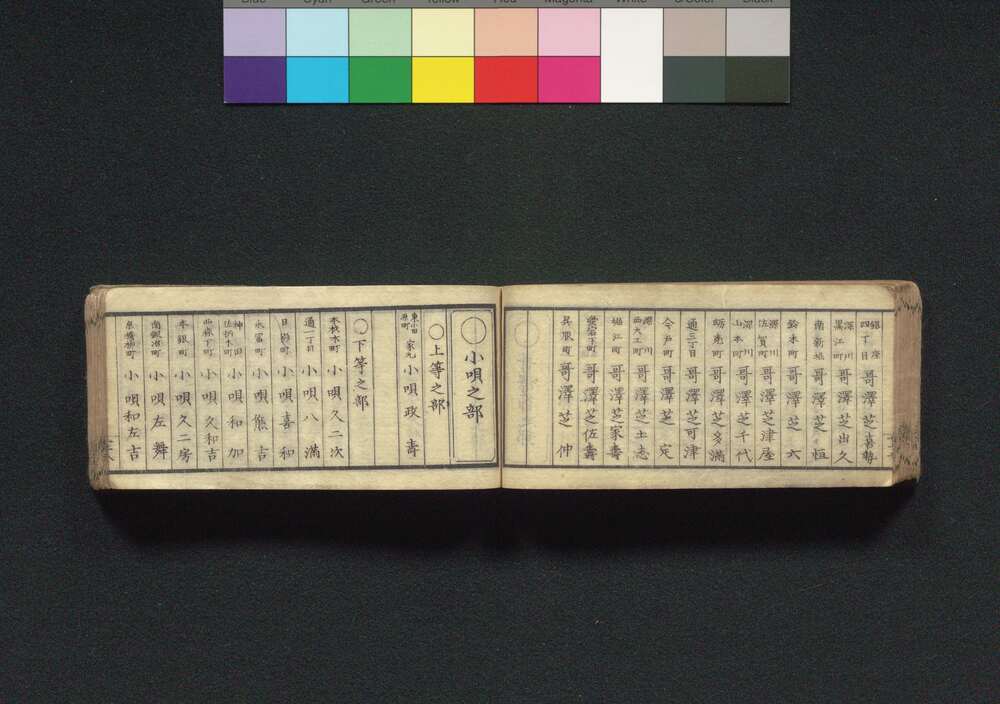 Cyan Green Yellow Red Magenta White 3/Color Black
銀座四丁目 哥澤芝喜勢
深川黒江町 哥澤芝由久
南新堀 哥澤芝恒
鈴木町 哥澤芝六
深川佐賀町 哥澤芝津屋
深川山本町 哥澤芝千代
蛎売町 哥澤芝多満
通三丁目 哥澤芝可津
今戸町 哥澤芝定
深川西大工町 哥澤芝土志
堀江町 哥澤芝家壽
愛宕下町 哥澤芝佐壽
呉服町 哥澤芝仲
小唄之部
〇上等之部
家元 小唄政壽
〇下等之部
本材木町 小唄久二次
通一丁目 小唄八満
小唄喜和
永冨町 小唄熊吉
神田佐柄木町 小唄和加
小唄久和吉
本銀町 小唄久二房
南鍛冶町 小唄左舞
小唄和左吉